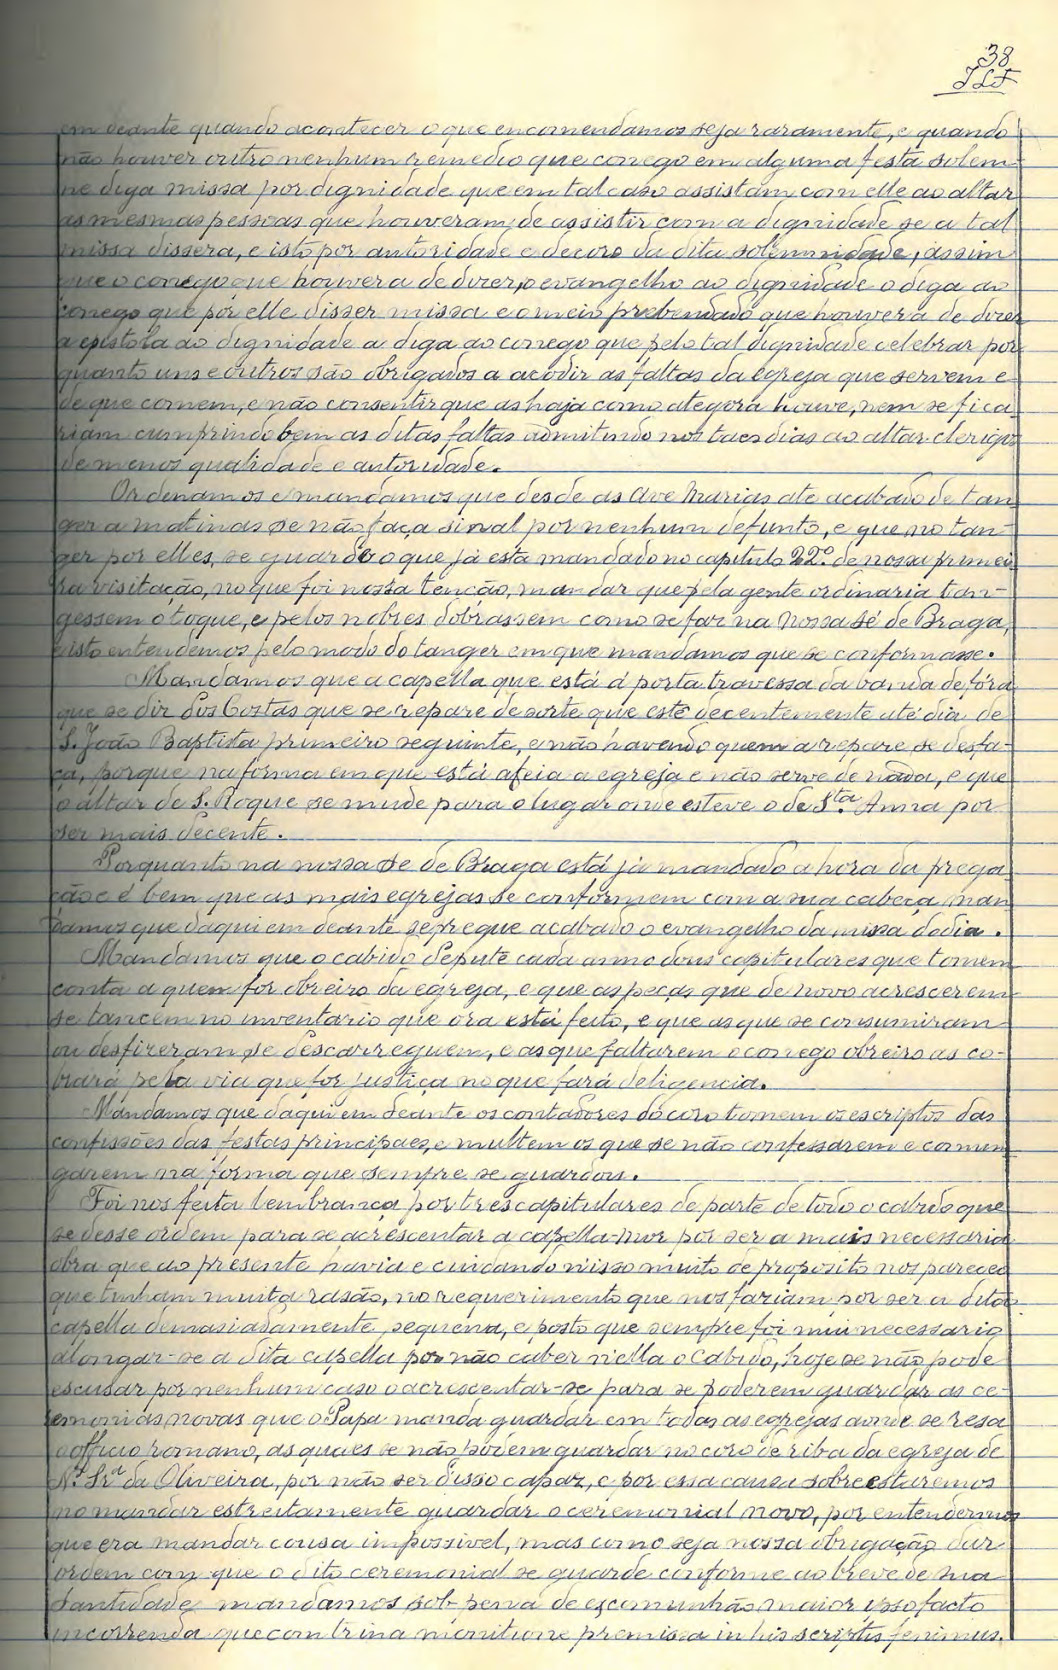 38
em deante quando acontecer o que encomendamos seja raramente, e quando
não houver outro nenhum remedio que conego em alguma festa solem-
ne diga missa por dignidade que em tal caso assistam com elle ao altar
as mesmas pessoas que houveram de assistir com a dignidade se a tal
missa dissera, e isto por autoridade e decoro da dita solemnidade, assim
que o conego que houvera de dizer o evangelho ao dignidade o diga ao
conego que por elle disser missa e o meio prebendado que houvera de dizer
a epistola ao dignidade a diga ao conego que pelo tal dignidade celebrar por
quanto uns e outros são obrigados a acodir as faltas da egreja que servem e
de que comem, e não consentir que as haja como ategora houve, nem se fica-
riam cumprindo bem as ditas faltas admitindo nos taes dias ao altar clerigos
de menos qualidade e autoridade.
Ordenamos e mandamos que desde as Ave Marias até acabado de tan-
ger a matinas se não faça sinal por nenhum defunto, e que no tan-
ger por elles, se guarde o que já está mandado no capitulo 22º de nossa primei-
ra visitação, no que foi nossa tenção, mandar que pela gente ordinaria tan-
gessem o toque, e pelos nobres dobrassem como se faz na nossa Sé de Braga,
e isto entendemos pelo modo do tanger em que mandamos que se conformasse.
Mandamos que a capella que está á porta travessa da banda de fóra
que se diz dos Costas que se repare de sorte que esté decentemente até dia de
S. João Baptista primeiro seguinte, e não havendo quem a repare se desfa-
ça, porque na forma em que está afeia a egreja e não serve de nada, e que
o altar de S. Roque se mude para o lugar onde esteve o de Sta. Anna por
ser mais decente.
Porquanto na nossa Se de Braga está já mandado a hora da prega-
ção e é bem que as mais egrejas se conformem com a sua cabeça, man-
damos que daqui em deante se pregue acabado o evangelho da missa do dia.
Mandamos que o cabido depute cada anno dous capitulares que tomem
conta a quem fôr obreiro da egreja, e que as peças que de novo acrescerem
se lancem no inventario que ora está feito, e que as que se consumiram
ou desfizeram se descarreguem, e as que faltarem o conego obreiro as co-
brará pela via que for justiça no que fará deligencia.
Mandamos que daqui em deante os contadores do coro tomem os escriptos das
confissões das festas principaes, e multem os que se não confessarem e comun-
garem na fórma que sempre se guardou.
Foi nos feita lembrança por tres capitulares de parte de todo o cabido que
se desse ordem para se acrescentar a capella-mor por ser a mais necessaria
obra que ao presente havia e cuidando n'isso muito de proposito nos pareceo
que tinham muita rasão, no requerimento que nos fariam por ser a dita
capella demasiadamente pequena, e posto que sempre foi mui necessario
alongar-se a dita capella por não caber n'ella o Cabido, hoje se não pode
escusar por nenhum caso o acrescentar-se para se poderem guardar as ce-
remonias novas que o Papa manda guardar em todas as egrejas aonde se resa
o officio romano, as quaes se não podem guardar no coro de riba da egreja de
Nª. Srª da Oliveira, por não ser disso capaz, e por essa causa sobreestaremos
no mandar estreitamente guardar o ceremonial novo, por entendermos
que era mandar cousa impossivel, mas como seja nossa obrigação dar
ordem com que o dito ceremonial se guarde conforme ao breve de sua
Santidade, mandamos sob pena de escomunhão maior ipso facto
incorrenda que com trina monitione premissa in his scriptis ferimus.